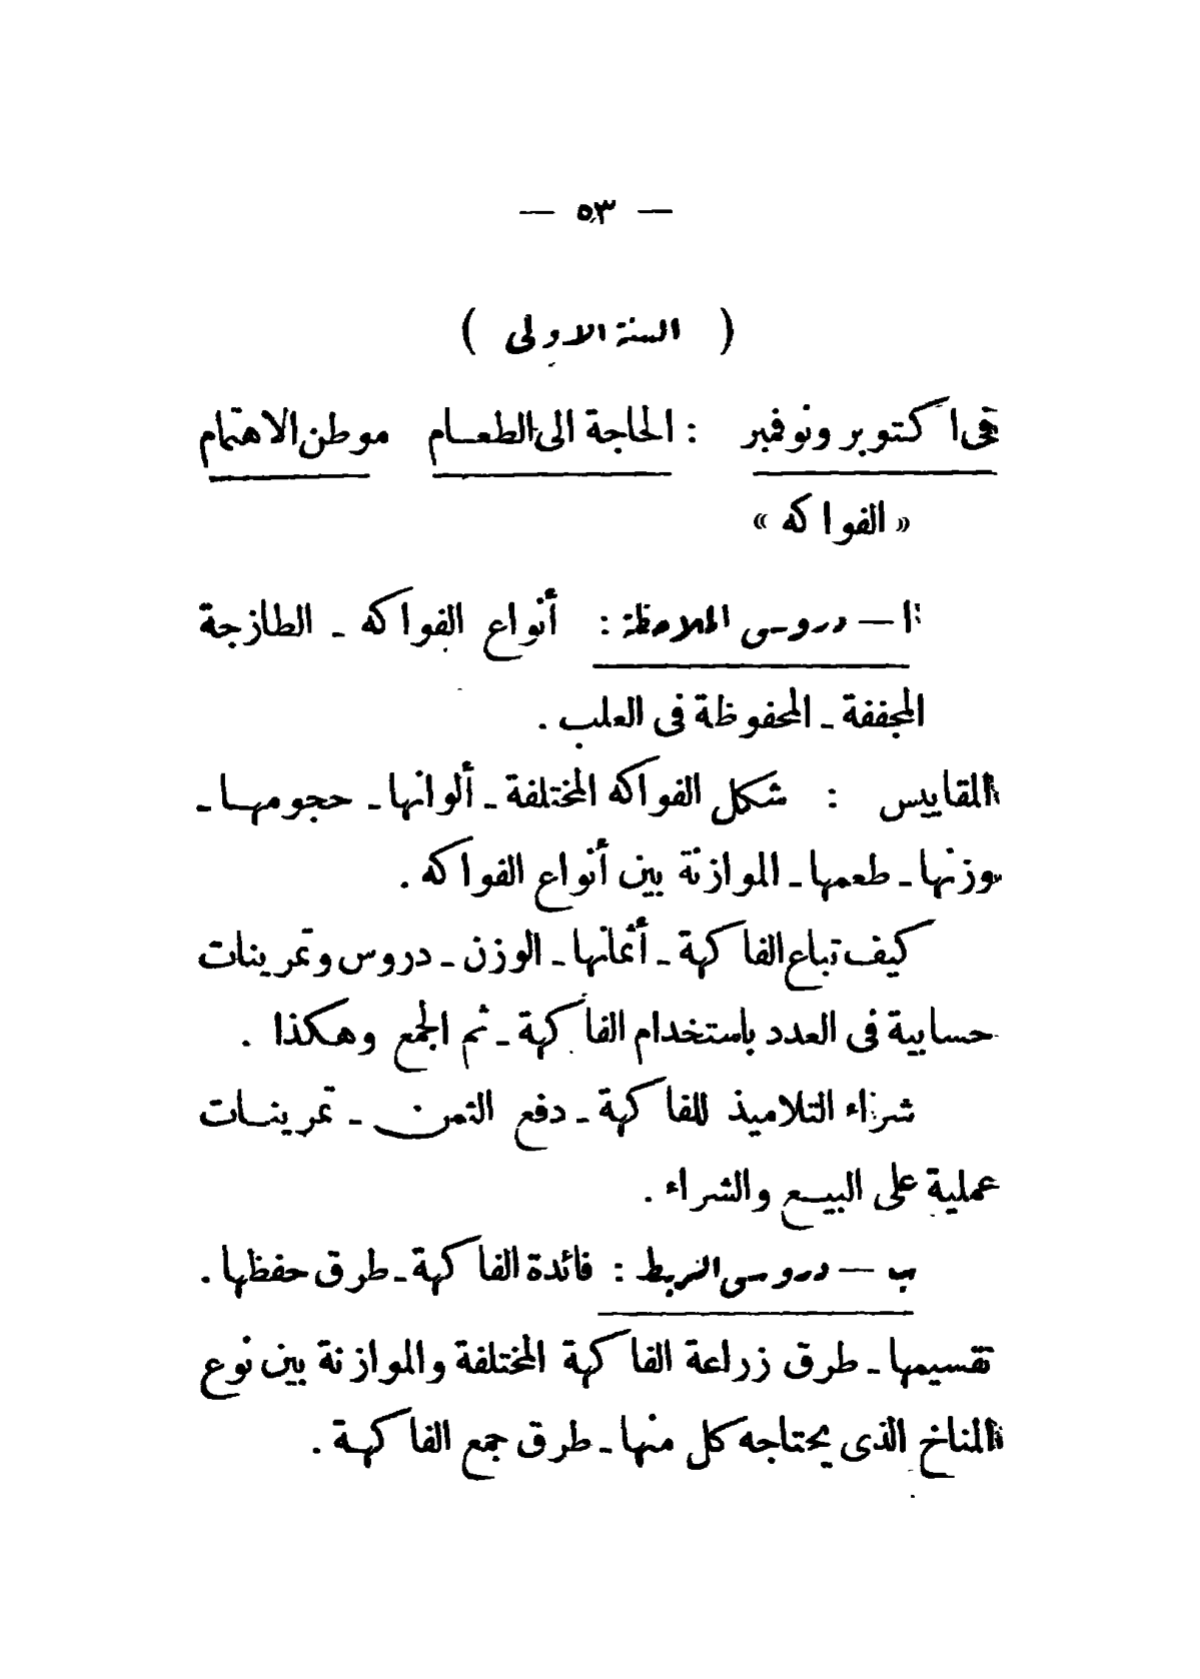 — ٥٣ —
( السنة الاولى )
فى اكتوبر ونوفمبر : الحاجة الى الطعام موطن الاهتمام
« الفواكه »
ا — دروس الملاحظة : أنواع الفواكه ـ الطازجة
المجففة ـ المحفوظة فى العلب .
المقاييس : شكل الفواكه المختلفة ـ ألوانها ـ حجومها ـ
وزنها ـ طعمها ـ الموازنة بين أنواع الفواكه .
كيف تباع الفاكهة ـ أثمانها ـ الوزن ـ دروس وتمرينات
حسابية فى العدد باستخدام الفاكهة ـ ثم الجمع وهكذا .
شراء التلاميذ للفاكهة ـ دفع الثمن ـ تمرينات
عملية على البيع والشراء .
ب — دروس الربط : فائدة الفاكهة ـ طرق حفظها .
تقسيمها ـ طرق زراعة الفاكهة المختلفة والموازنة بين نوع
المناخ الذى يحتاجه كل منها ـ طرق جمع الفاكهة .